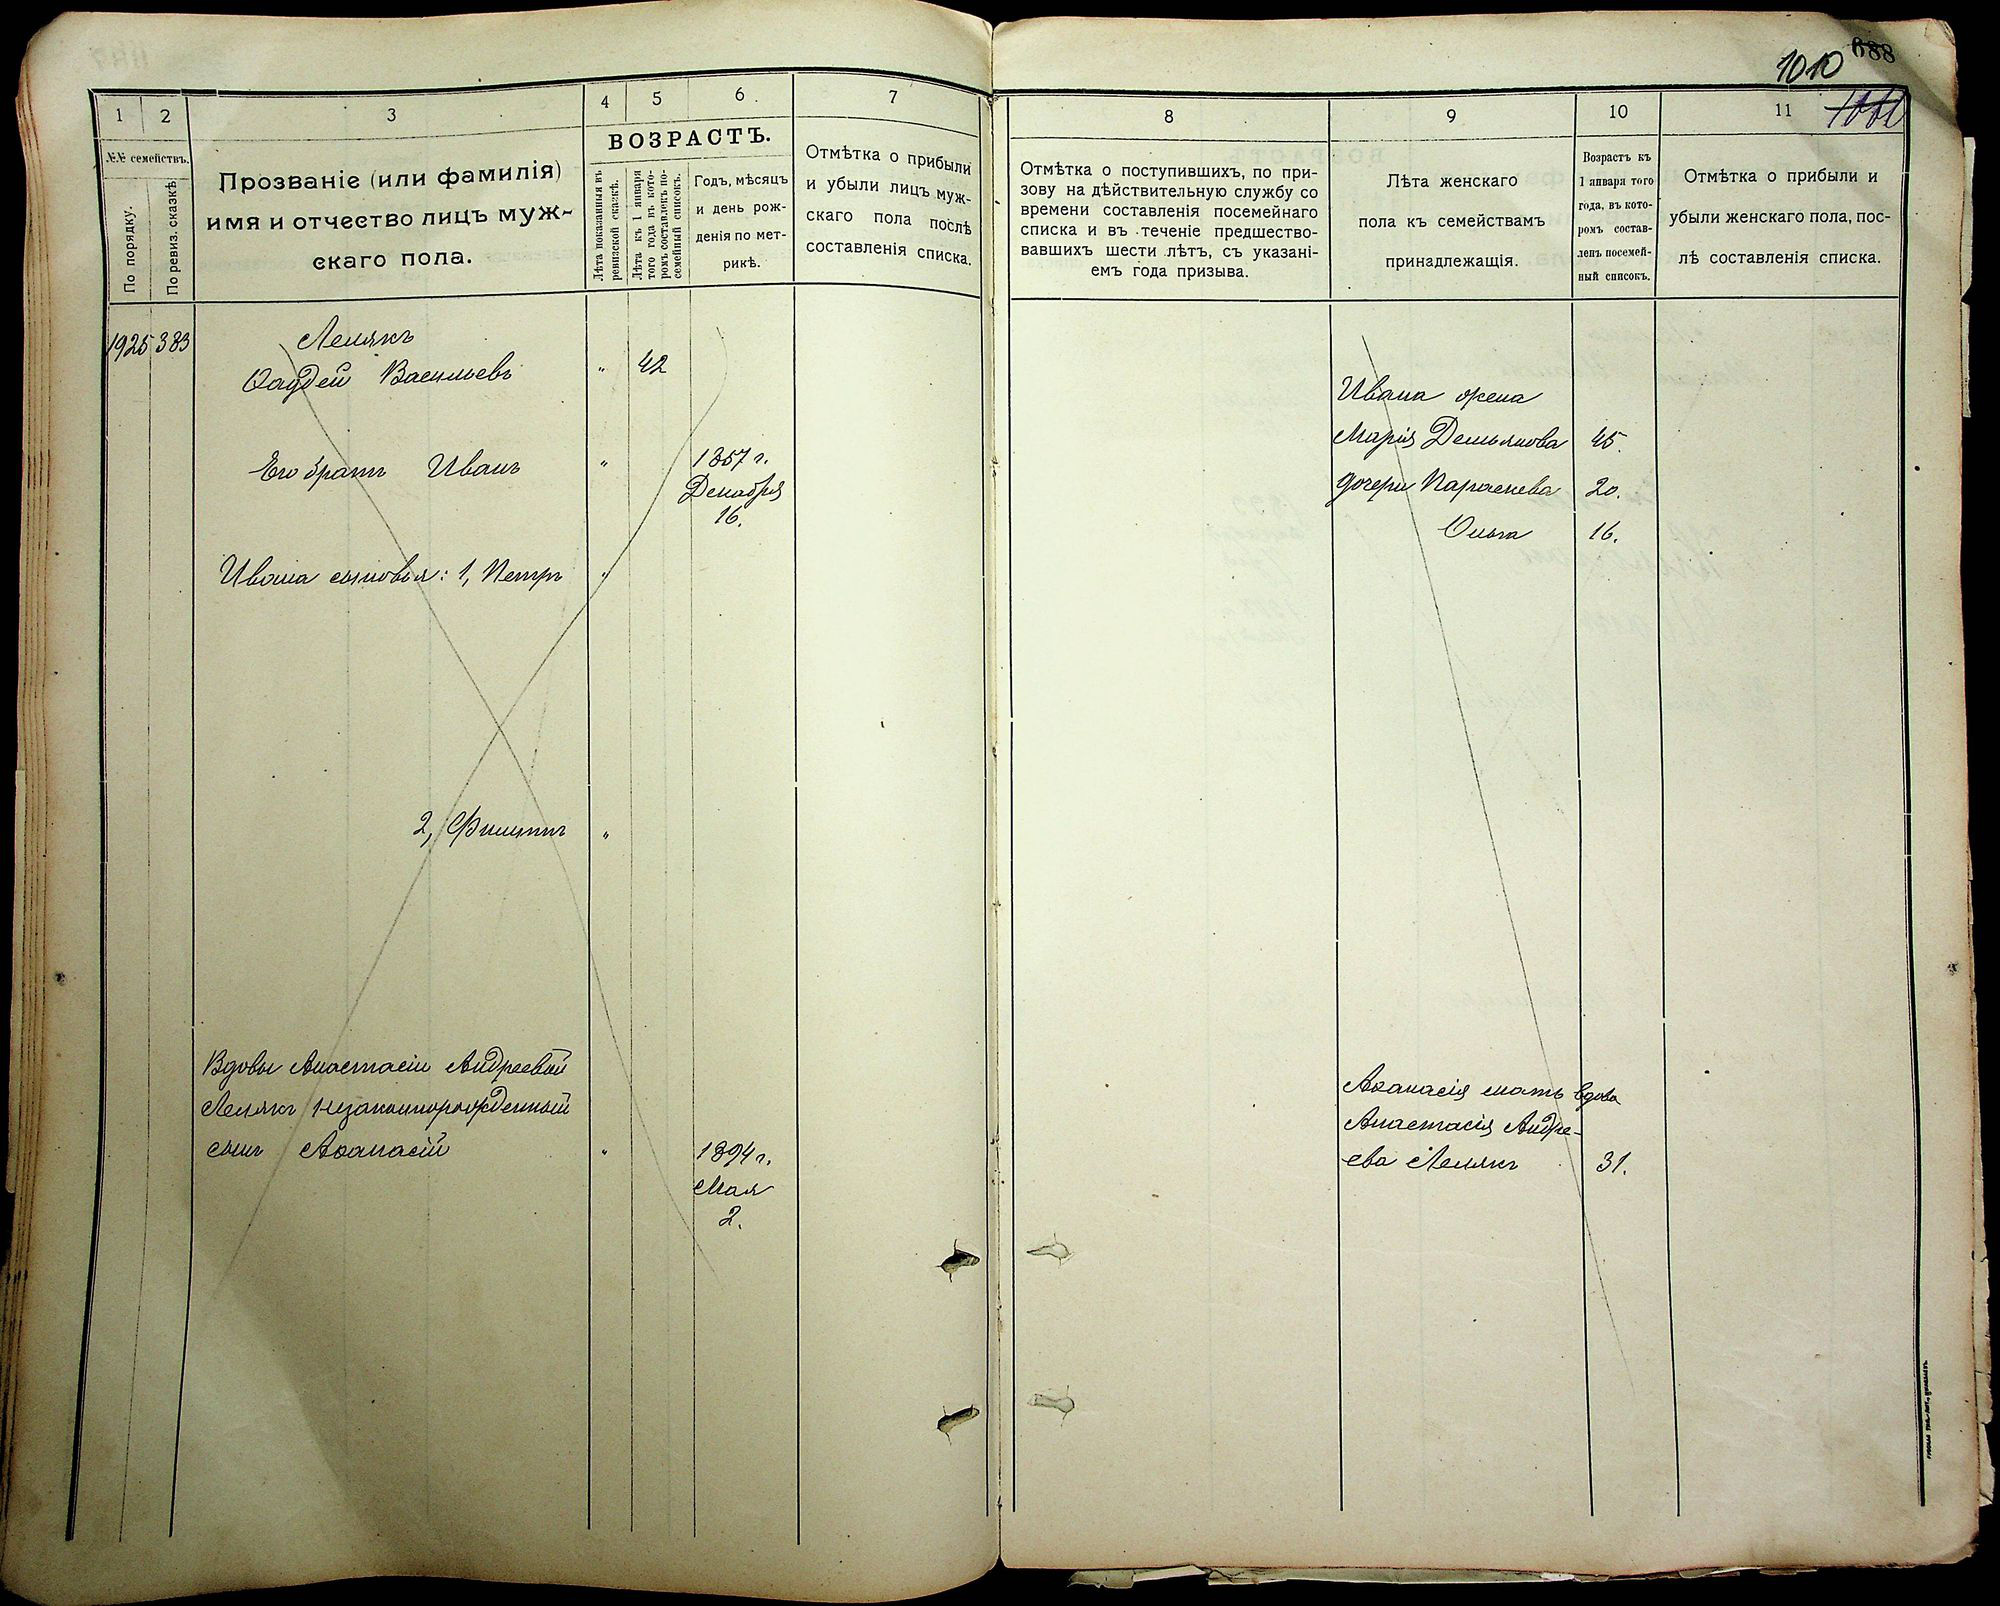 1010 688
1 2 3 4 5 6 7
№№ семействъ.
По порядку.
По ревиз. сказкѣ.
Прозваніе (или фамилія)
имя и отчество лицъ муж-
скаго пола.
ВОЗРАСТЪ.
Лѣта показанныя въ
ревизской сказкѣ.
Лѣта къ 1 января
того года въ кото-
ромъ составлекъ по-
семейный списокъ.
Годъ, мѣсяцъ
и день рож-
денія по мет-
рикѣ.
Отмѣтка о прибыли
и убыли лицъ муж-
скаго пола послѣ
составленія списка.
1925 383
Лемякъ
Фаддей Васильевъ " 42
Его братъ Иванъ " 1857 г.
Декабря
16.
Ивана сыновья: 1, Петръ "
2, Филиппъ "
Вдовы Анастасіи Андреевой
Лемякъ незаконнорожденный
сынъ Афанасій " 1894 г.
Мая
2.
8 9 10 11
Отмѣтка о поступившихъ, по при-
зову на дѣйствительную службу со
времени составленія посемейнаго
списка и въ теченіе предшество-
вавшихъ шести лѣтъ, съ указані-
емъ года призыва.
Лѣта женскаго
пола къ семействамъ
принадлежащія.
Возрастъ къ
1 января того
года, въ кото-
ромъ состав-
ленъ посемей-
ный списокъ.
Отмѣтка о прибыли и
убыли женскаго пола, пос-
лѣ составленія списка.
Ивана жена
Марія Демьянова 45.
дочери Параскева 20.
Ольга 16.
Афанасія мать вдова
Анастасія Андре-
ева Лемякъ 31.